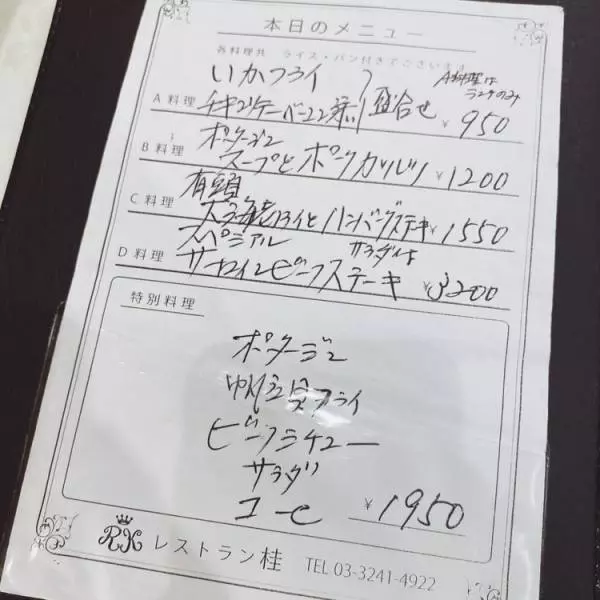 本日のメニュー
各料理共 ライス・パン付きでございます
A料理は
ランチのみ
いかフライ
A 料理 チキンソテーベーコン添え 盛合せ ¥950
ポタージュ
B 料理 スープとポークカツレツ ¥1200
有頭
C 料理 大海老フライとハンバーグステーキ ¥1550
スペシャル サラダ付
D 料理 サーロインビーフステーキ ¥3200
特別料理
ポタージュ
帆立貝フライ
ビーフシチュー
サラダ
コーヒ ¥1950
RK レストラン桂 TEL 03-3241-4922